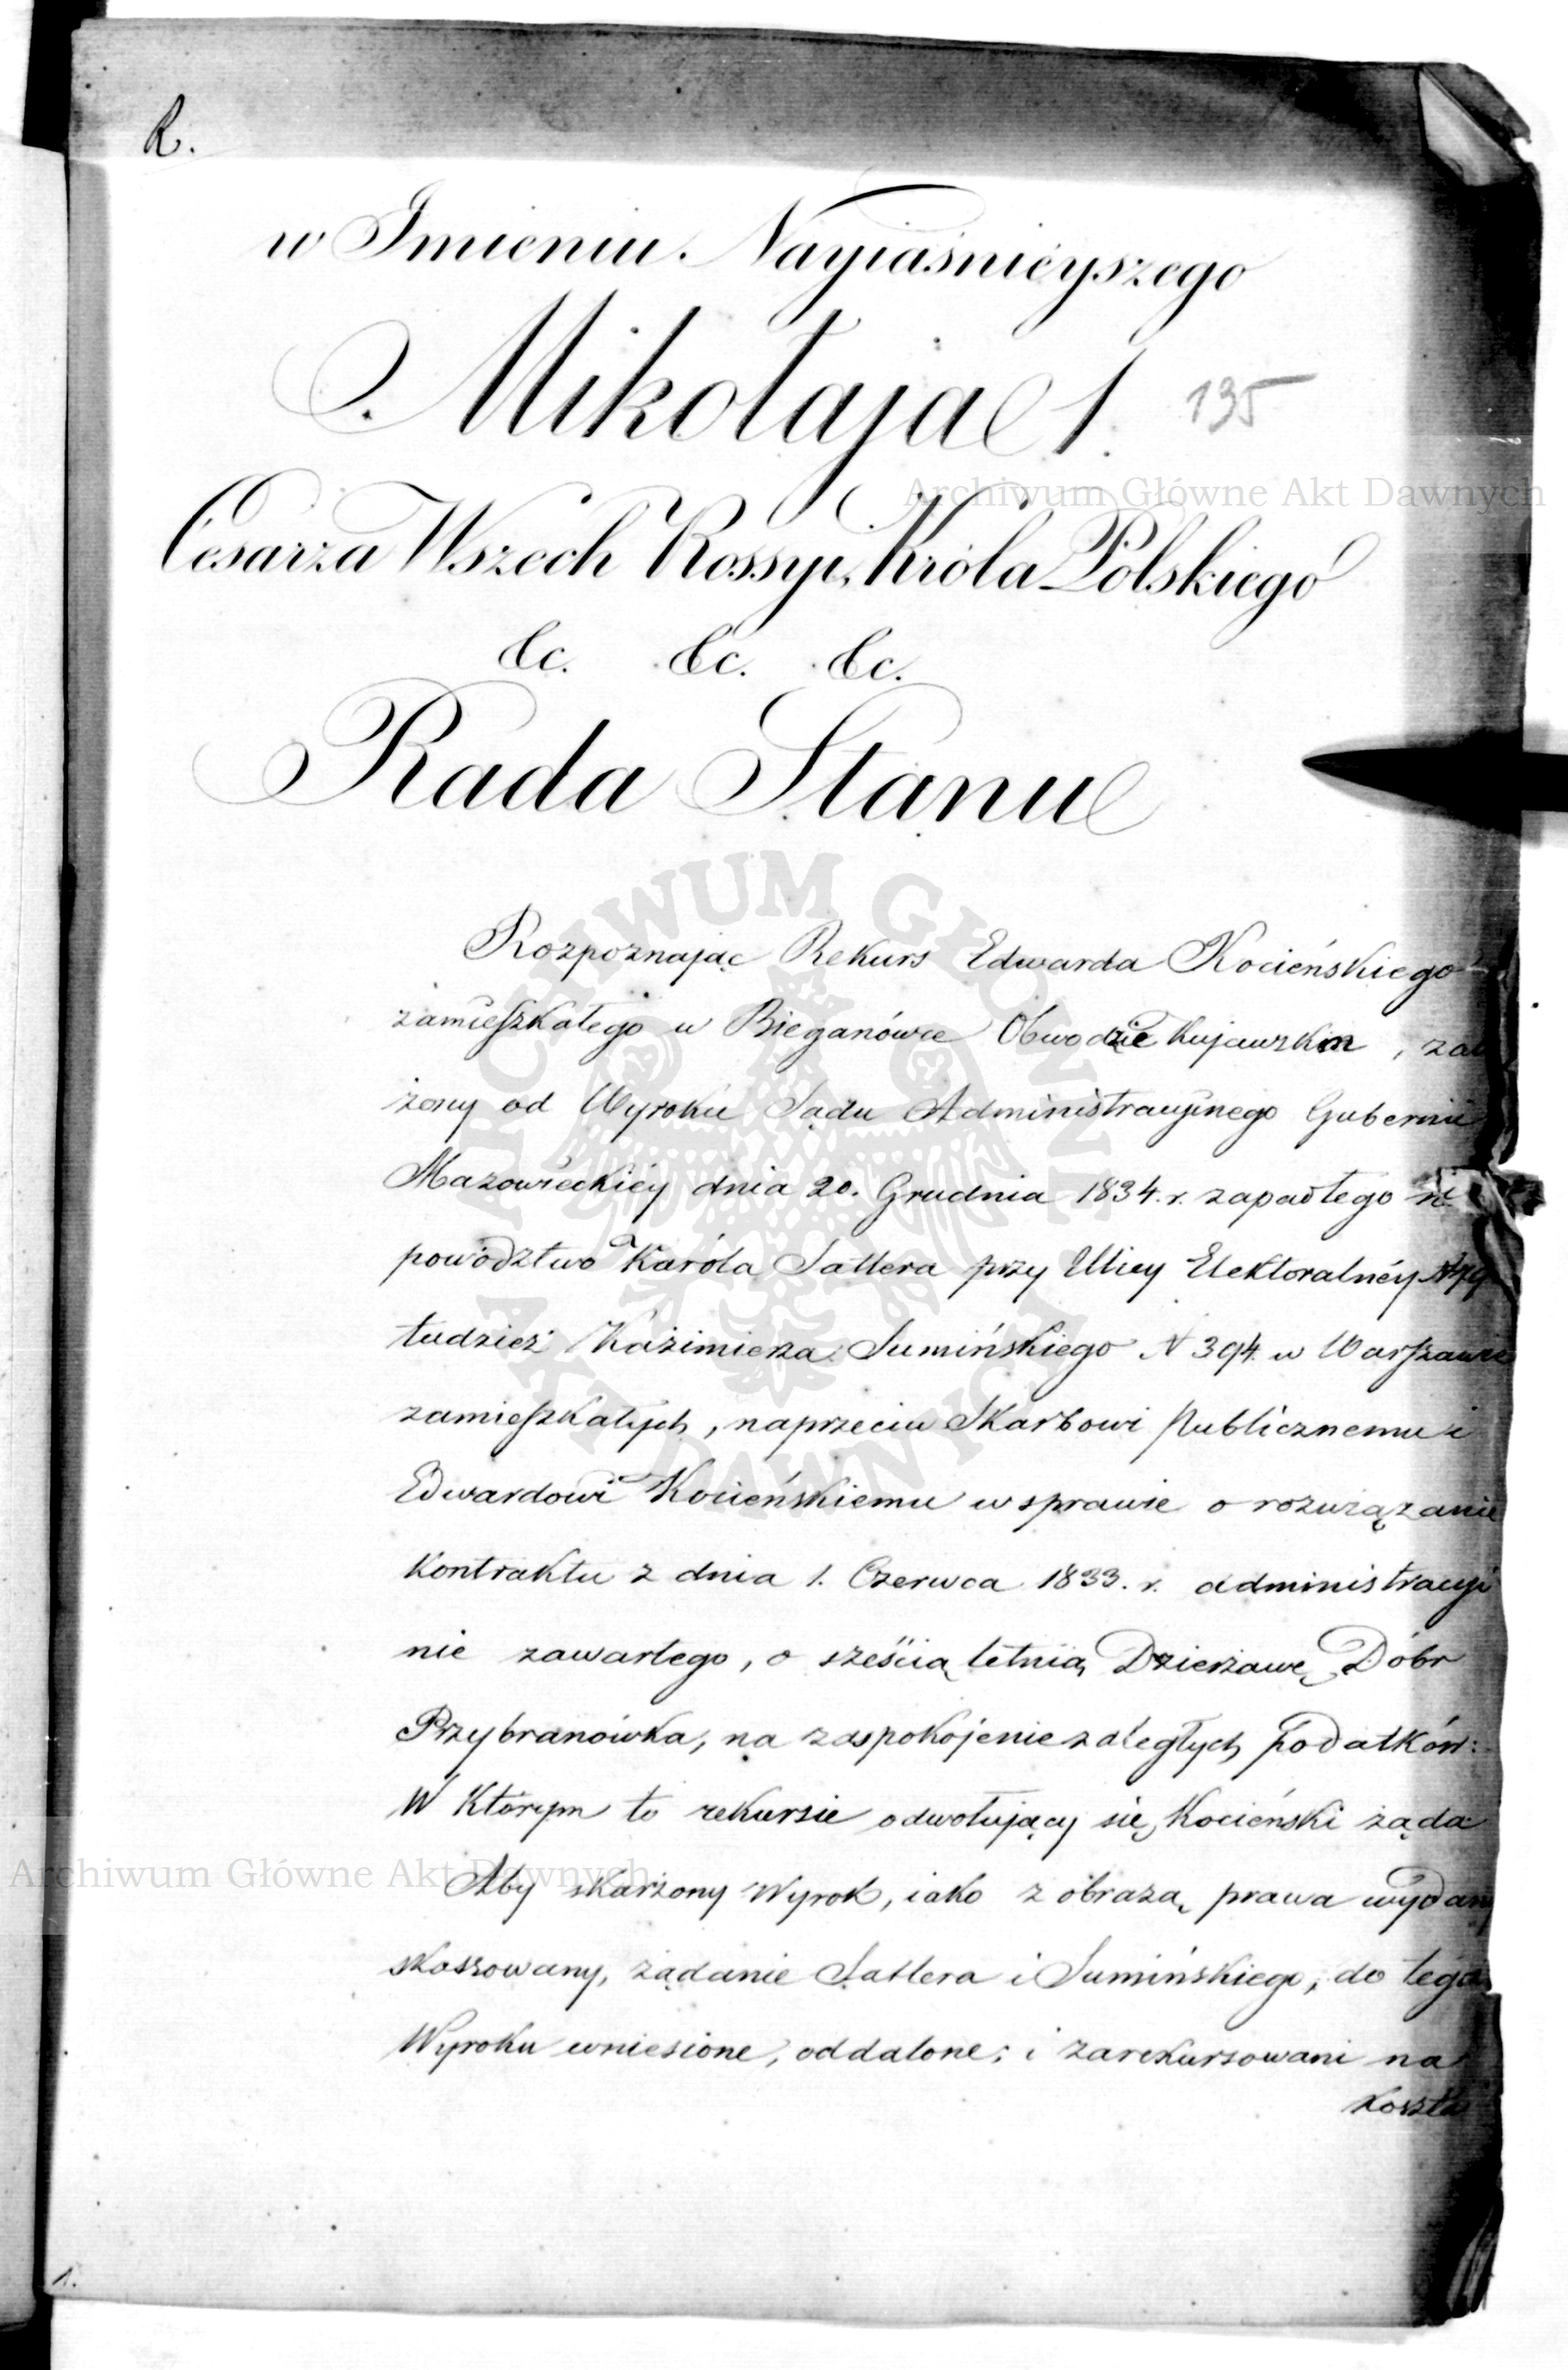 R.
w Imieniu Nayiaśnieyszego
Mikołaja I.
135
Cesarza Wszech Rossyi, Króla Polskiego
&c. &c. &c.
Rada Stanu
Rozpoznając Rekurs Edwarda Kocieńskiego
zamieszkałego w Bieganówce Obwodzie Kujawskim, zał
żony od Wyroku Sądu Administracyjnego Gubernii
Mazowieckiéy dnia 20. Grudnia 1834. r. zapadłego
powództwo Karóla Sattera przy Ulicy Elektoralnéy
tudzież Kazimierza Sumińskiego N 394. w Warszawie
zamieszkałych, naprzeciw Skarbowi Publicznemu i
Edwardowi Kocieńskiemu w sprawie o rozwiązanie
Kontraktu z dnia 1. Czerwca 1833. r. administracyi
nie zawartego, o sześcią letnią Dzierżawę Dóbr
Przybranówka, na zaspokojenie zaległych podatków:
W którym to rekursie odwołujący się Kocieński żąda
Aby skarżony Wyrok, iako z obrazą prawa wydany
skassowany, żądanie Sattera i Sumińskiego, do tego
Wyroku wniesione, oddalone; i zarekursowani na
koszta
1.
Archiwum Główne Akt Dawnych
ARCHIWUM GŁÓWNE
AKT DAWNYCH
Archiwum Główne Akt Dawnych